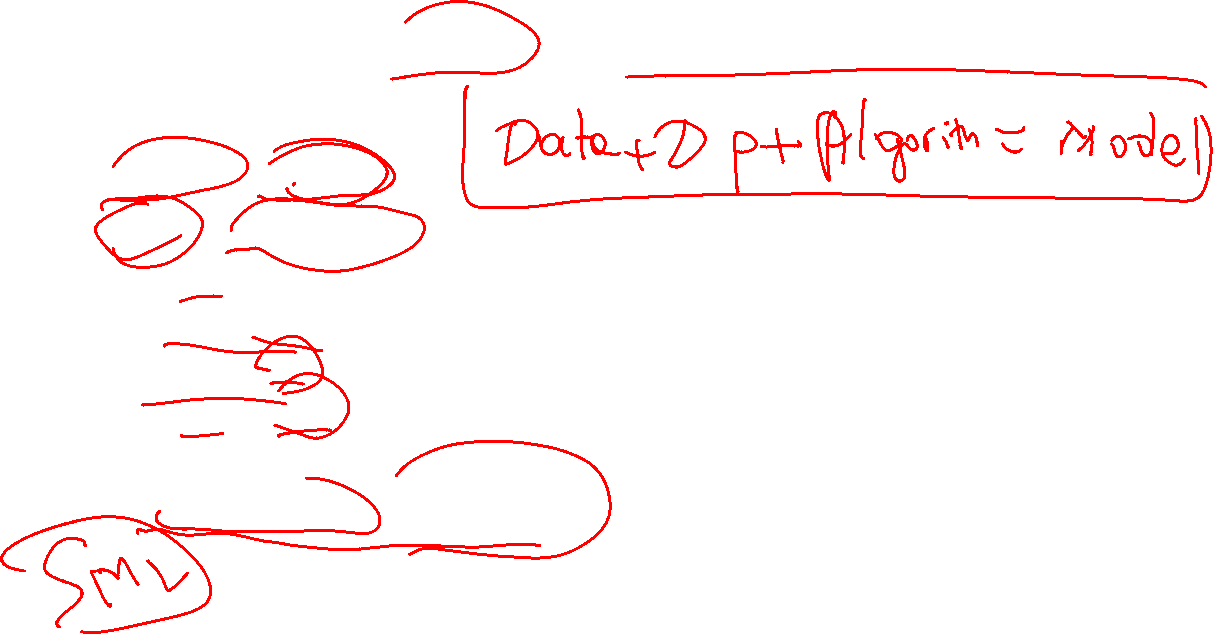 Data + D p + Algorith = Model
SML